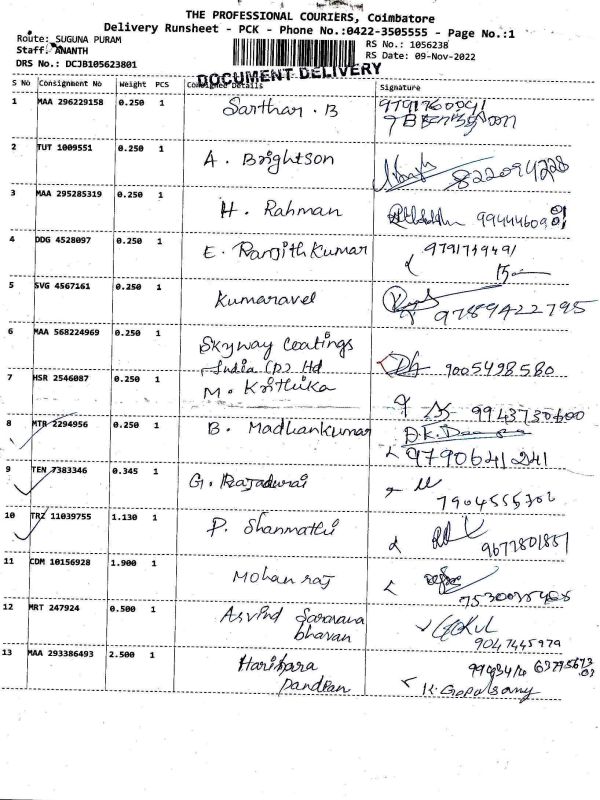 THE PROFESSIONAL COURIERS, Coimbatore
Delivery Runsheet - PCK - Phone No.:0422-3505555 - Page No.:1
Route: SUGUNA PURAM
RS No.: 1056238
Staff: ANANTH
RS Date: 09-Nov-2022
DRS No.: DCJB105623801
DOCUMENT DELIVERY
S No Consignment No Weight PCS Consigned Details Signature
1 MAA 296229158 0.250 1 Sarthar . B
2 TUT 1009551 0.250 1 A . Brightson 8220947228
3 MAA 295285319 0.250 1 H. Rahman
4 DDG 4528097 0.250 1 E. Ranjith Kumar
5 SVG 4567161 0.250 1 Kumaravel 9789422795
6 MAA 568224969 0.250 1 Skyway Coatings 9005498580
India (P) Ltd
7 HSR 2546087 0.250 1 M. Krithika 9943730600
8 MTR 2294956 0.250 1 B. Madhankumar
9790641241
9 TEN 7383346 0.345 1 G. Rajadurai
10 TRZ 11039755 1.130 1 P. Shanmathi
11 CDM 10156928 1.900 1 Mohan raj
12 MRT 247924 0.500 1 Asvind Saravana Gokul
bhavan 9047445979
13 MAA 293386493 2.500 1 Harihara
Pandian K. Gopalsamy